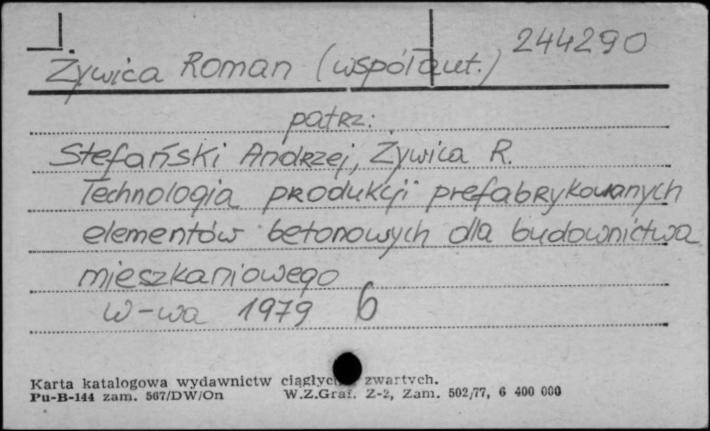 244290
Żywica Roman (współaut.)
patrz:
Stefański Andrzej, Żywica R.
Technologia produkcji prefabrykowanych
elementów betonowych dla budownictwa
mieszkaniowego
W-wa 1979 6
Karta katalogowa wydawnictw ciągłych zwartych.
Pu-B-144 zam. 567/DW/On W.Z.Graf. Z-2, Zam. 502/77, 6 400 000